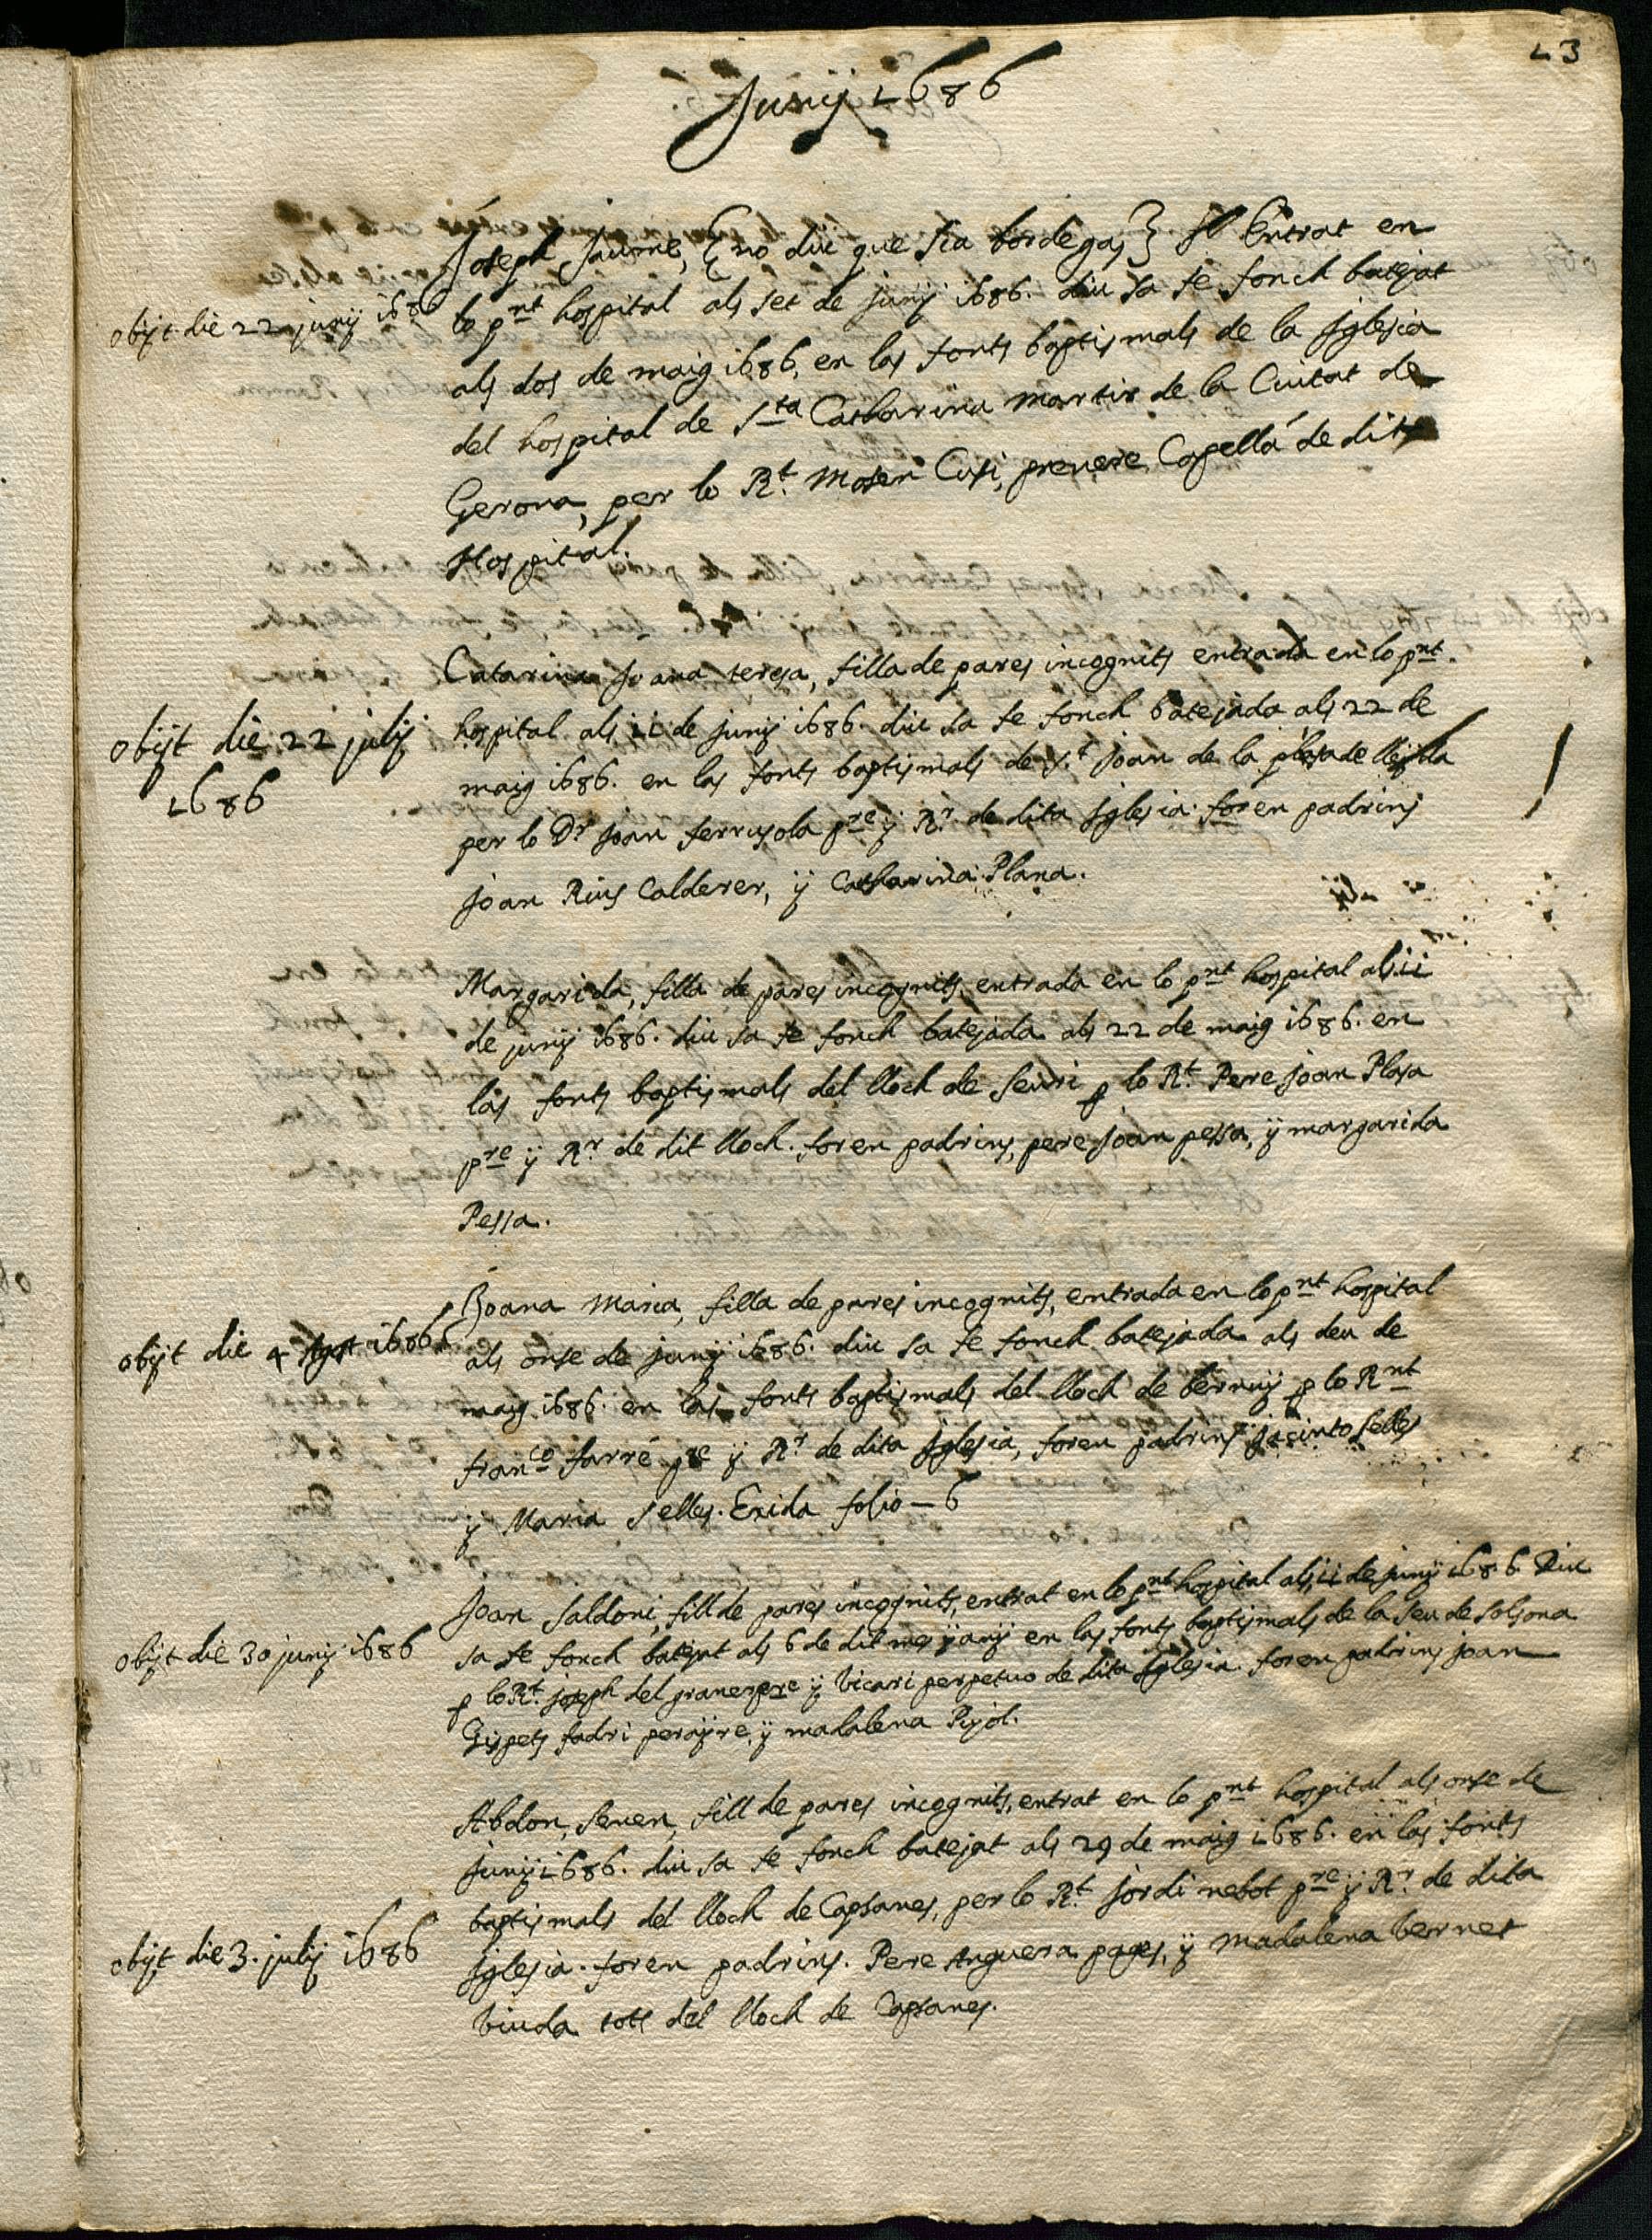 13
Junÿ 1686
Joseph Jaume, {no diu que sia bordegas} Entrat en
lo pnt hospital als set de junÿ 1686. diu sa fe fonch batejat
als dos de maig 1686, en las fonts baptismals de la Iglesia
del hospital de Sta Catharina martir de la Ciutat de
Gerona, per lo Rt. Mosen Cusi, prevere Capellá de dit
Hospital.
obijt die 22 junÿ 1686
Catarina Joana teresa, filla de pares incognits entrada en lo pnt.
hospital als 11 de junÿ 1686. diu sa fe fonch batejada als 22 de
maig 1686. en las fonts baptismals de St. Joan de la
per lo Dr Joan ferrusola pre ÿ Rr. de dita Iglesia. foren padrins
Joan Rius Calderer, ÿ Catharina Plana.
obijt die 22 julÿ
1686
Margarida, filla de pares incognits, entrada en lo pnt hospital als 11
de junÿ 1686. diu sa fe fonch batejada als 22 de maig 1686. en
las fonts baptismals del lloch de Seuri p lo Rt. Pere Joan Plasa
pre ÿ Rr de dit lloch. foren padrins, pere Joan pessa, ÿ margarida
Pessa.
Joana Maria, filla de pares incognits, entrada en lo pnt hospital
als onse de junÿ 1686. diu sa fe fonch batejada als deu de
maig 1686. en las fonts baptismals del lloch de bernuÿ p lo Rnt
franco farré pre ÿ Rr de dita Iglesia, foren padrins Jacinto Selles
ÿ Maria Selles. Exida folio - 6
obijt die 4 Agst 1686
Joan Saldoni, fill de pares incognits, entrat en lo pnt hospital als 11 de junÿ 1686. Diu
sa fe fonch batejat als 6 de dit mes ÿ anÿ en las fonts baptismals de la Seu de Solsona
p lo Rt. Joseph del graner pre ÿ Vicari perpetuo de dita Iglesia. foren padrins Joan
Gispets fadri peraÿre, ÿ madalena Pujol.
obijt die 30 junÿ 1686
Abdon, Senen, fill de pares incognits, entrat en lo pnt hospital als onse de
junÿ 1686. diu sa fe fonch batejat als 29 de maig 1686. en las fonts
baptismals del lloch de Capsanes, per lo Rt. Jordi nebot pre ÿ Rr. de dita
Iglesia. foren padrins. Pere Anguera pages, ÿ Madalena Vernet
Viuda tots del lloch de Capsanes.
obijt die 3. julÿ 1686